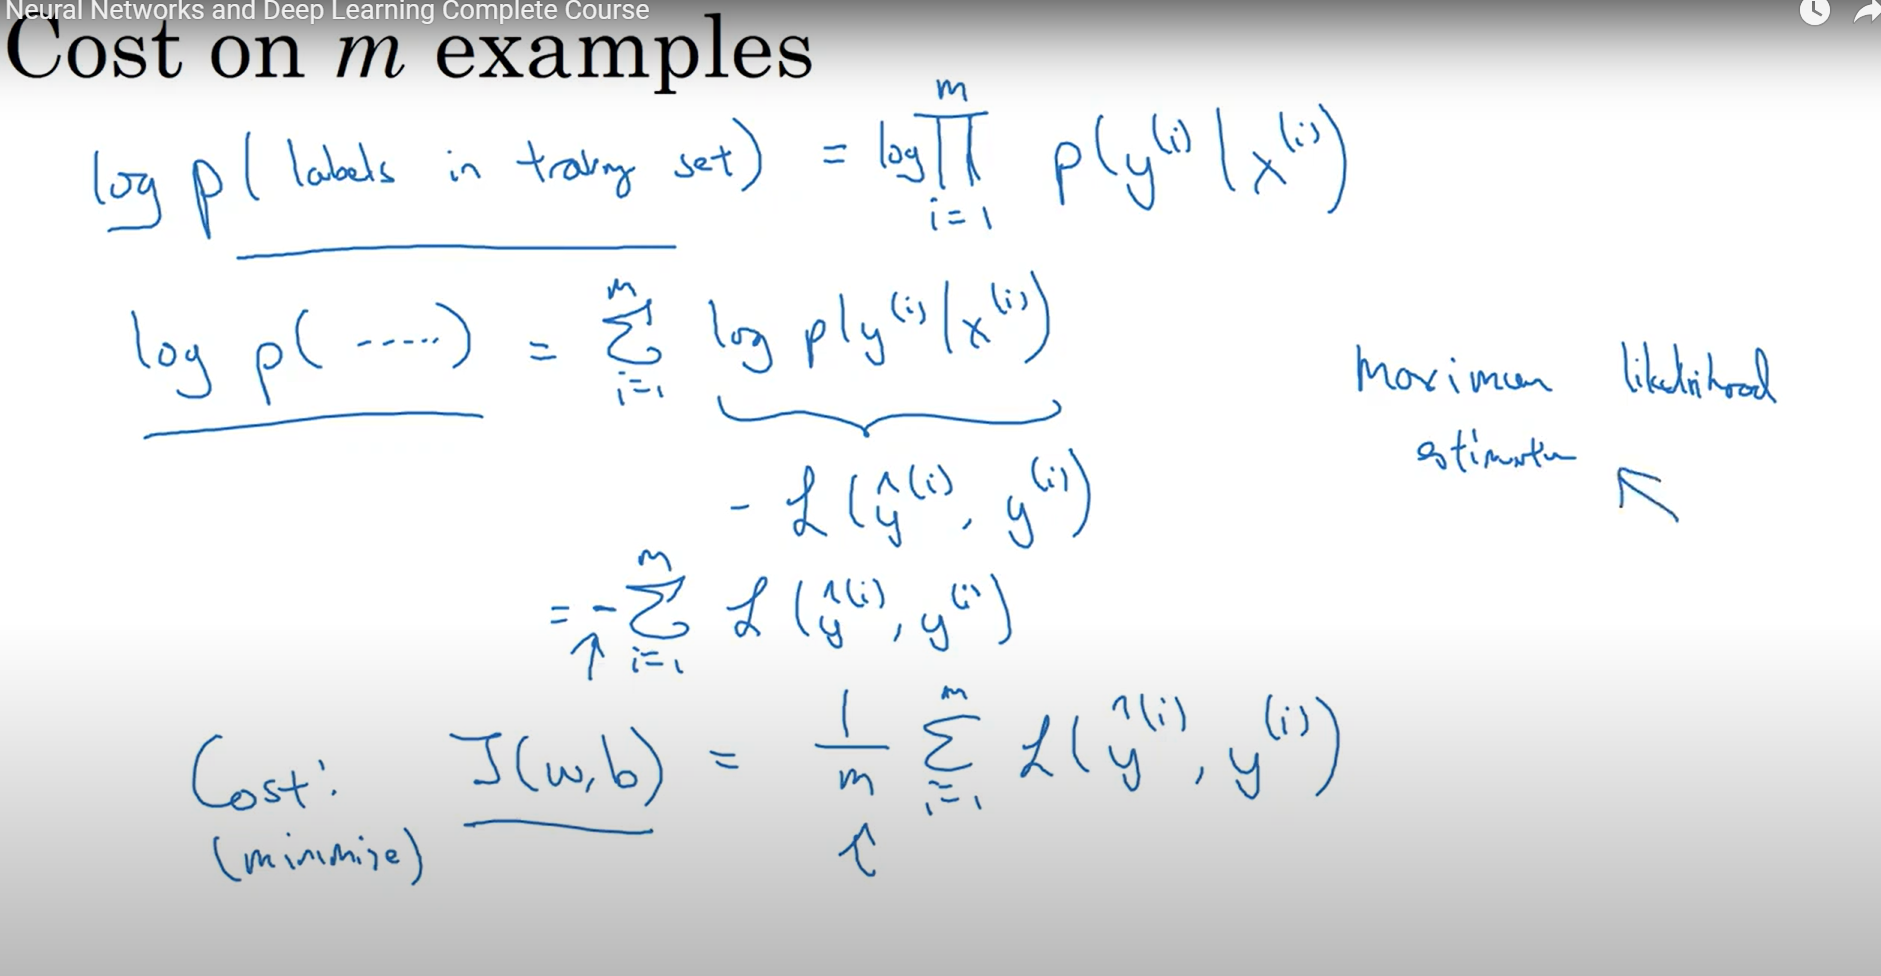 Neural Networks and Deep Learning Complete Course
Cost on m examples
log p( labels in training set) = log ∏_{i=1}^{m} p(y^{(i)} | x^{(i)})
log p( ----- ) = Σ_{i=1}^{m} log p(y^{(i)} | x^{(i)})
Maximum likelihood
estimation ↖
- ℒ(ŷ^{(i)}, y^{(i)})
= - Σ_{i=1}^{m} ℒ(ŷ^{(i)}, y^{(i)})
↑
Cost: J(w,b) = 1/m Σ_{i=1}^{m} ℒ(ŷ^{(i)}, y^{(i)})
(minimize) ↑